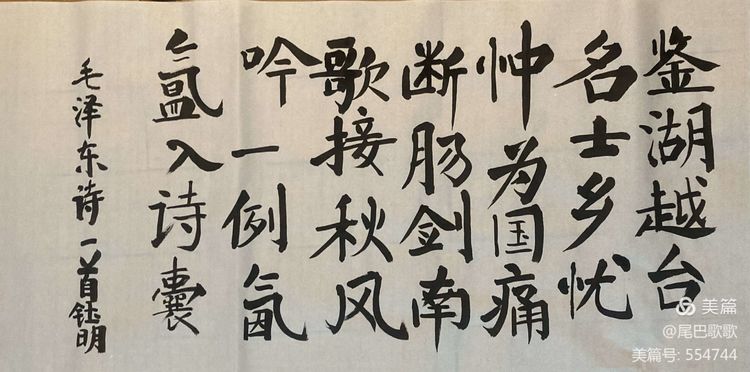 鉴湖越台
名士乡忧
忡为国痛
断肠剑南
歌接秋风
吟一例氤
氲入诗囊
毛泽东诗一首钰明
美篇
@尾巴歌歌
美篇号: 554744